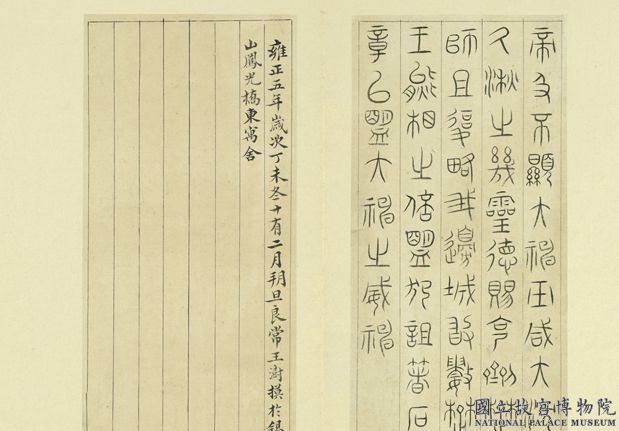 帝及不顯大神巫咸大
久湫之幾靈德賜克劑楚
師且復略我邊城敢數楚
王熊相之倍盟犯詛著石
章以盟大神之威神
雍正五年歲次丁未冬十有二月朔旦良常王澍摸於銀
山鳳光橋東寓舍
國立故宮博物院
NATIONAL PALACE MUSEUM